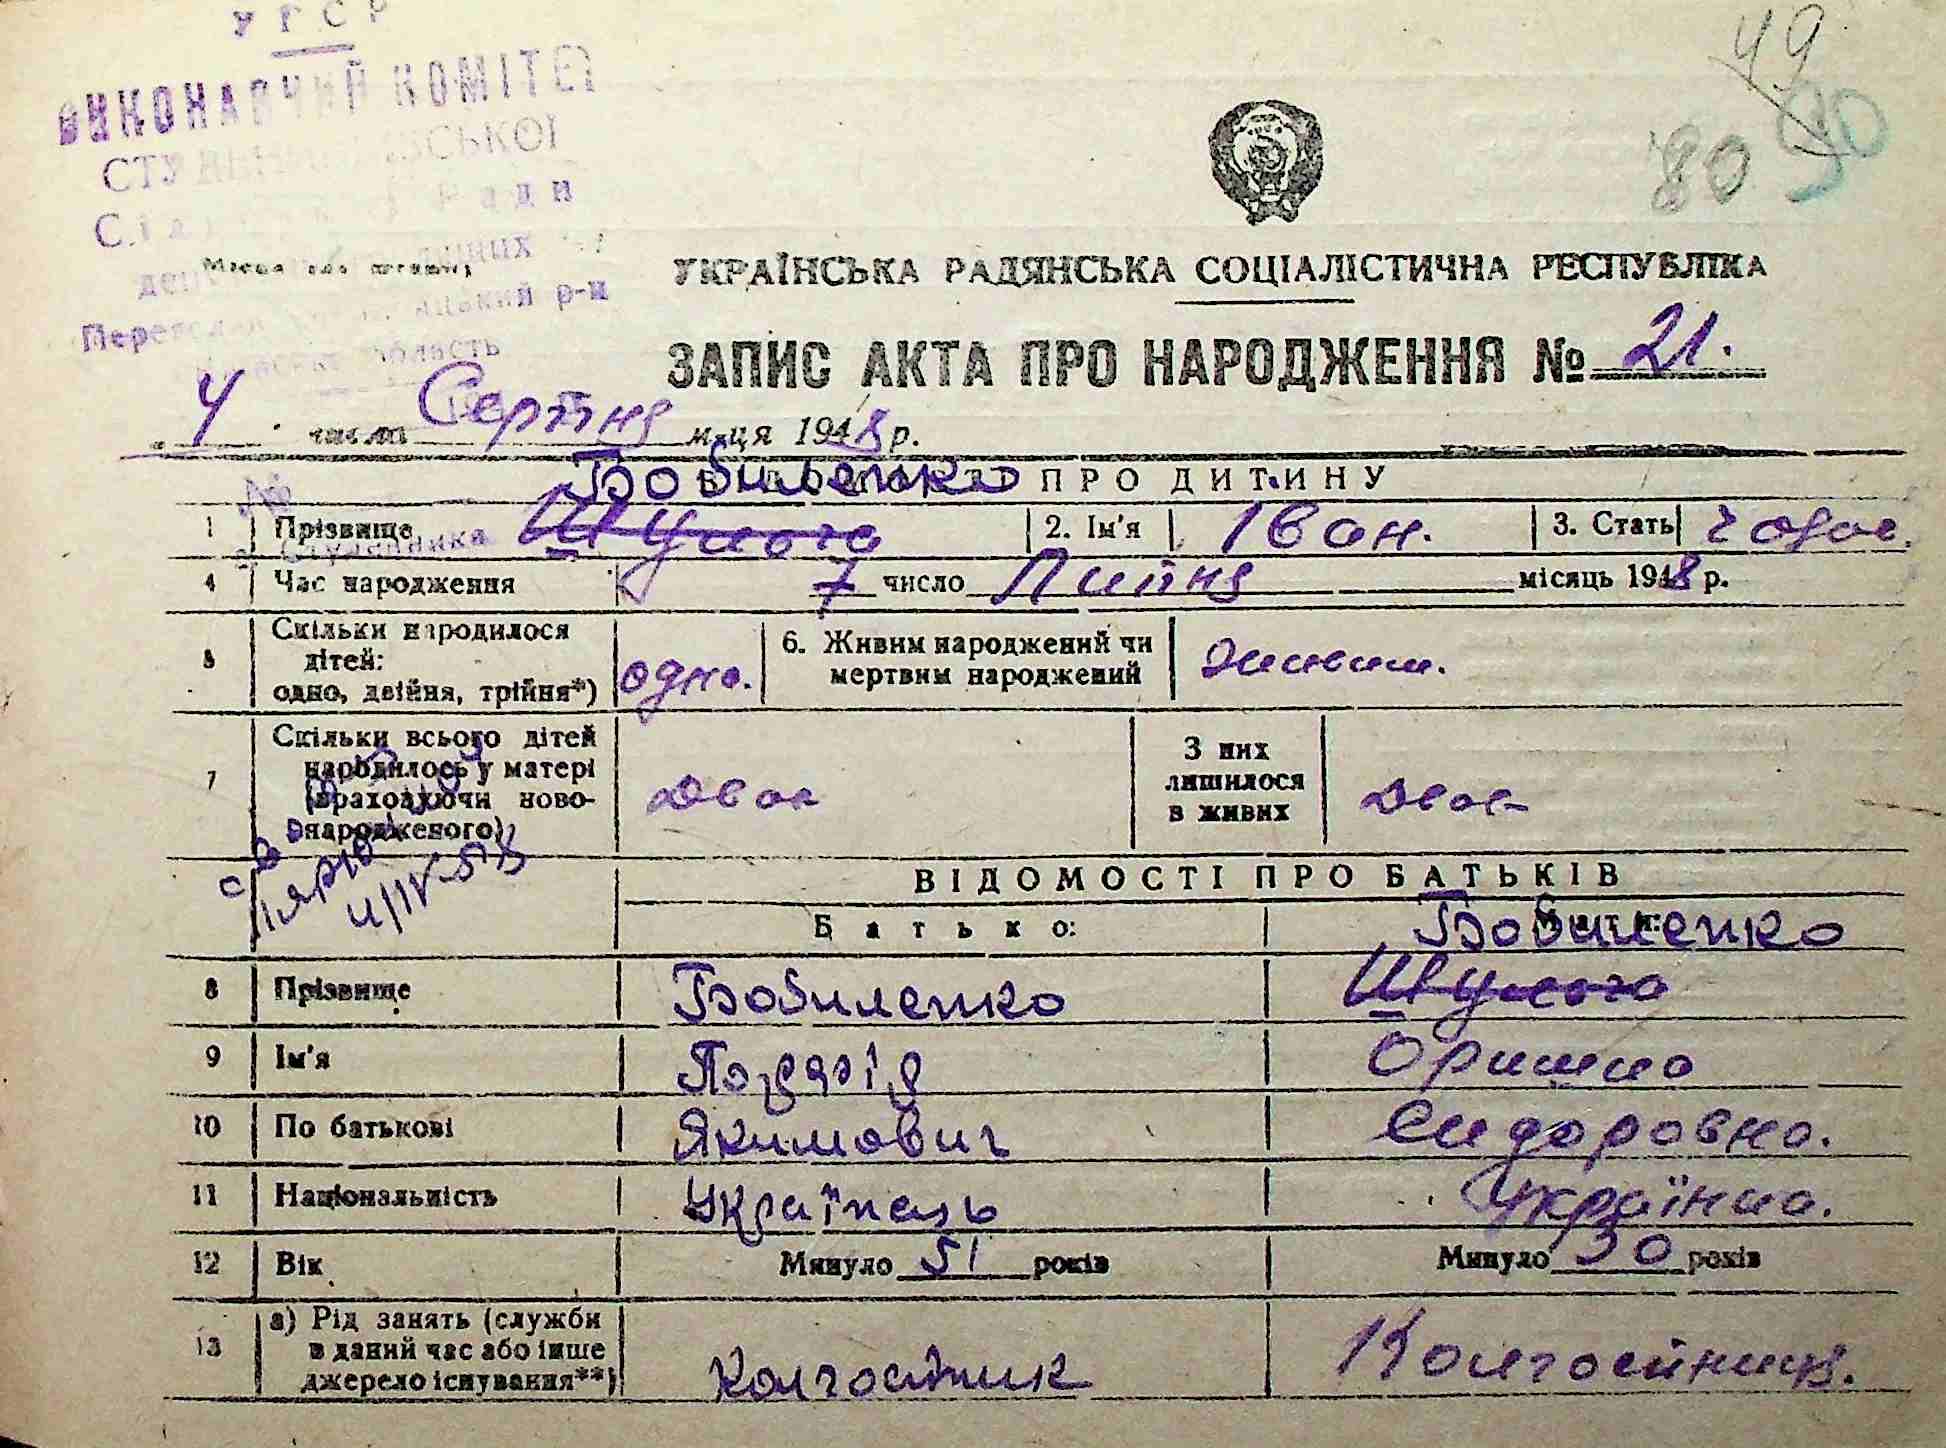 УРСР
ВИКОНАВЧИЙ КОМІТЕТ
Ради
р-н
область
49
80 90
УКРАЇНСЬКА РАДЯНСЬКА СОЦІАЛІСТИЧНА РЕСПУБЛІКА
ЗАПИС АКТА ПРО НАРОДЖЕННЯ № 21.
"4" числа Серпня м-ця 1948 р.
ПРО ДИТИНУ
Бобиленко
1 Прізвище 2. Ім'я Іван. 3. Стать чолов.
4 Час народження 7 число Липня місяць 1948 р.
5 Скільки народилося дітей: одно, двійня, трійня*) одно. 6. Живим народжений чи мертвим народжений живим.
7 Скільки всього дітей народилось у матері (враховуючи новонародженого) двоє З них лишилося в живих двоє
ВІДОМОСТІ ПРО БАТЬКІВ
Батько: Мати:
Бобиленко
8 Прізвище Бобиленко
9 Ім'я Оришка
10 По батькові Якимович Сидоровна.
11 Національність Українець Українка.
12 Вік Минуло 51 років Минуло 30 років
13 а) Рід занять (служби в даний час або інше джерело існування**) Колгоспник Колгоспниця.